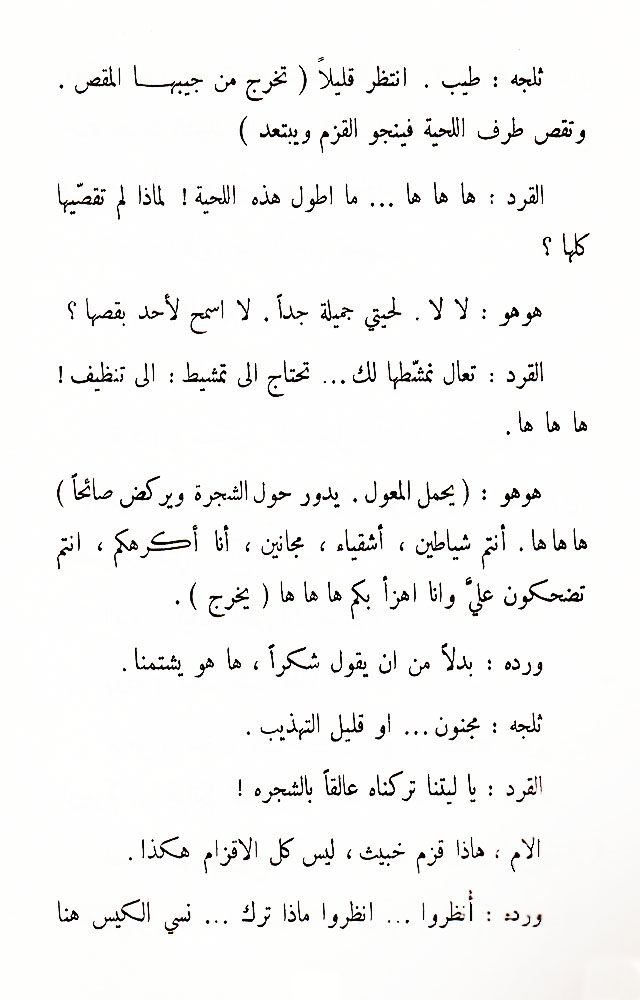 ثلجه : طيب . انتظر قليلاً ( تخرج من جيبهـا المقص .
وتقص طرف اللحية فينجو القزم ويبتعد )
القرد : ها ها ها ... ما اطول هذه اللحية ! لماذا لم تقصّيها
كلها ؟
هوهو : لا لا . لحيتي جميلة جداً . لا اسمح لأحد بقصها ؟
القرد : تعال نمشّطها لك ... تحتاج الى تمشيط : الى تنظيف !
ها ها ها .
هوهو : ( يحمل المعول . يدور حول الشجرة ويركض صائحاً )
ها ها ها . أنتم شياطين ، أشقياء ، مجانين ، أنا أكرهكم ، انتم
تضحكون عليَّ وانا اهزأ بكم ها ها ها ( يخرج ) .
ورده : بدلاً من ان يقول شكراً ، ها هو يشتمنا .
ثلجه : مجنون ... او قليل التهذيب .
القرد : يا ليتنا تركناه عالقاً بالشجره !
الام ، هاذا قزم خبيث ، ليس كل الاقزام هكذا .
ورده : أنظروا ... انظروا ماذا ترك ... نسي الكيس هنا